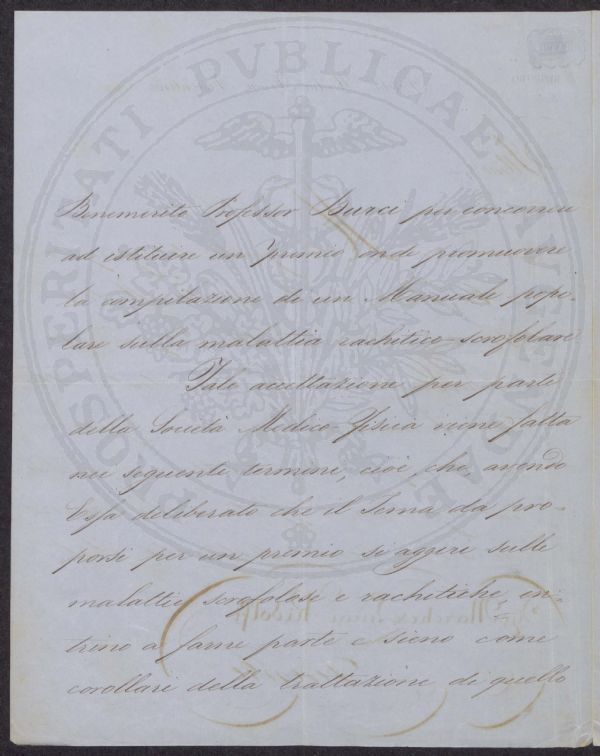 PROSPERITATI PVBLICAE AVGENDAE
Benemerito Professor Burci per concorrere
ad istituire un premio onde promuovere
la compilazione di un Manuale popo-
lare sulla malattia rachitico-scrofolare
Tale accettazione per parte
della Società Medico-Fisica viene fatta
nei seguente termine, cioè, che avendo
Essa deliberato che il Tema da pro-
porsi per un premio si aggiri sulle
malattie scrofolose e rachitiche, en-
trino a farne parte e sieno come
corollari della trattazione di quello